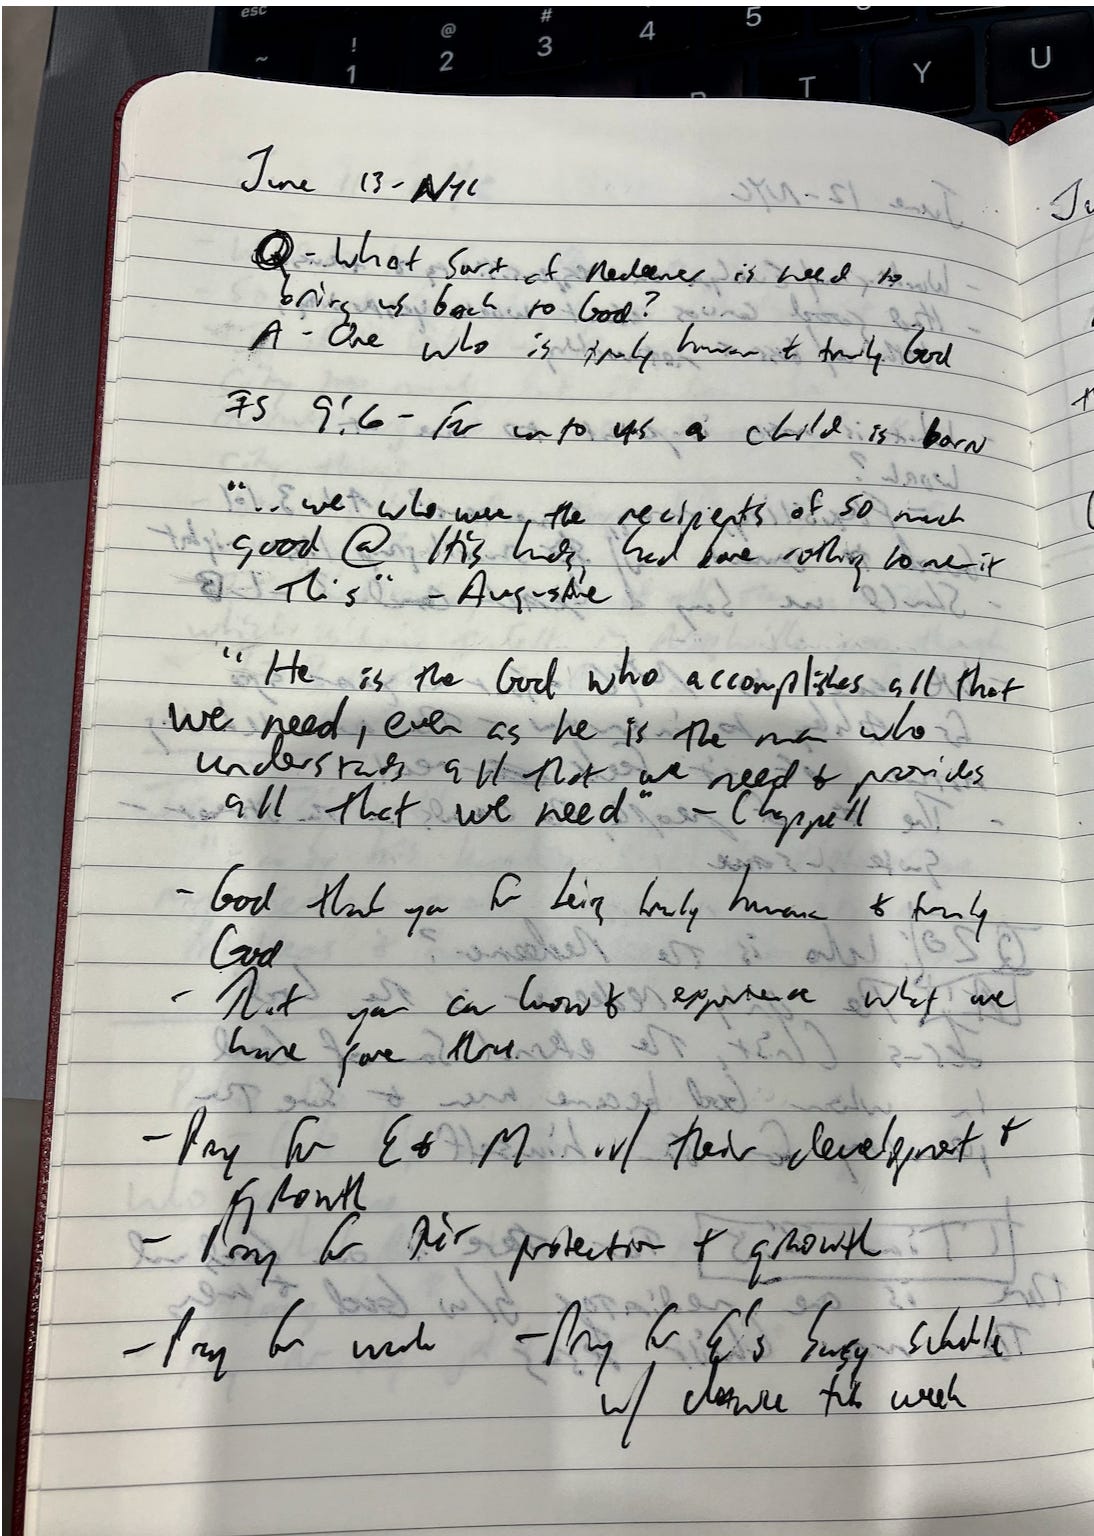 June 13 - NYC
Q - What sort of Redeemer is need to
bring us back to God?
A - One who is truly human & truly God
IS 9:6 - For unto us a child is born
"... we who were, the recipients of so much
good @ His hands, had done nothing to merit
this" - Augustine
"He is the God who accomplishes all that
we need, even as he is the man who
understands all that we need & provides
all that we need" - Chappell
- God thank you for being truly human & truly
God
- That you can know & experience what we
have gone thru
- Pray for E & M w/ their development &
growth
- Pray for their protection & growth
- Pray for work - Pray for E's busy schedule
w/ closure this week